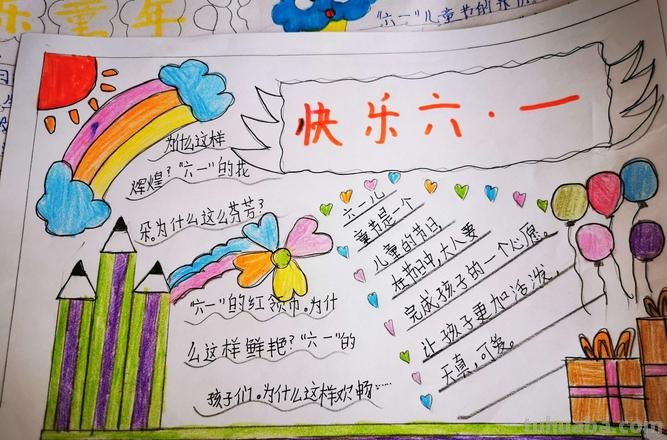 乐童年
"六一"儿童节的
快乐六·一
为什么这样
辉煌?"六一"的花
朵。为什么这么芬芳?
"六一"的红领巾。为什
么这样鲜艳?"六一"的
孩子们。为什么这样欢畅……
六一儿
童节是一个
儿童的节日
在节日中,大人要
完成孩子的一个心愿。
让孩子更加活泼,
天真,可爱。
tuhuaba.com